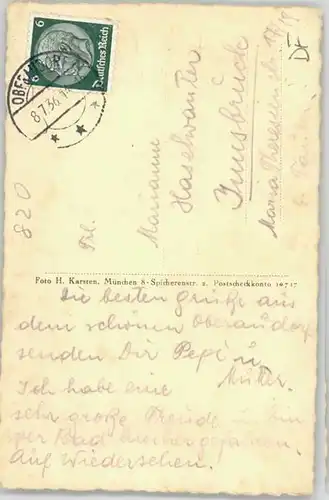 6 Deutsches Reich 6
8.7.36.
DF
820
Frl.
Marianne
Haselwanter
Innsbruck
Maria Theresien str.
Foto H. Karsten, München 8 · Spicherenstr. 2. Postscheckkonto 10717
Die besten Grüße aus
dem schönen Oberaudorf
senden Dir Pepi u.
Mutter.
Ich habe eine
sehr große Freude
Bad
Auf Wiedersehen.